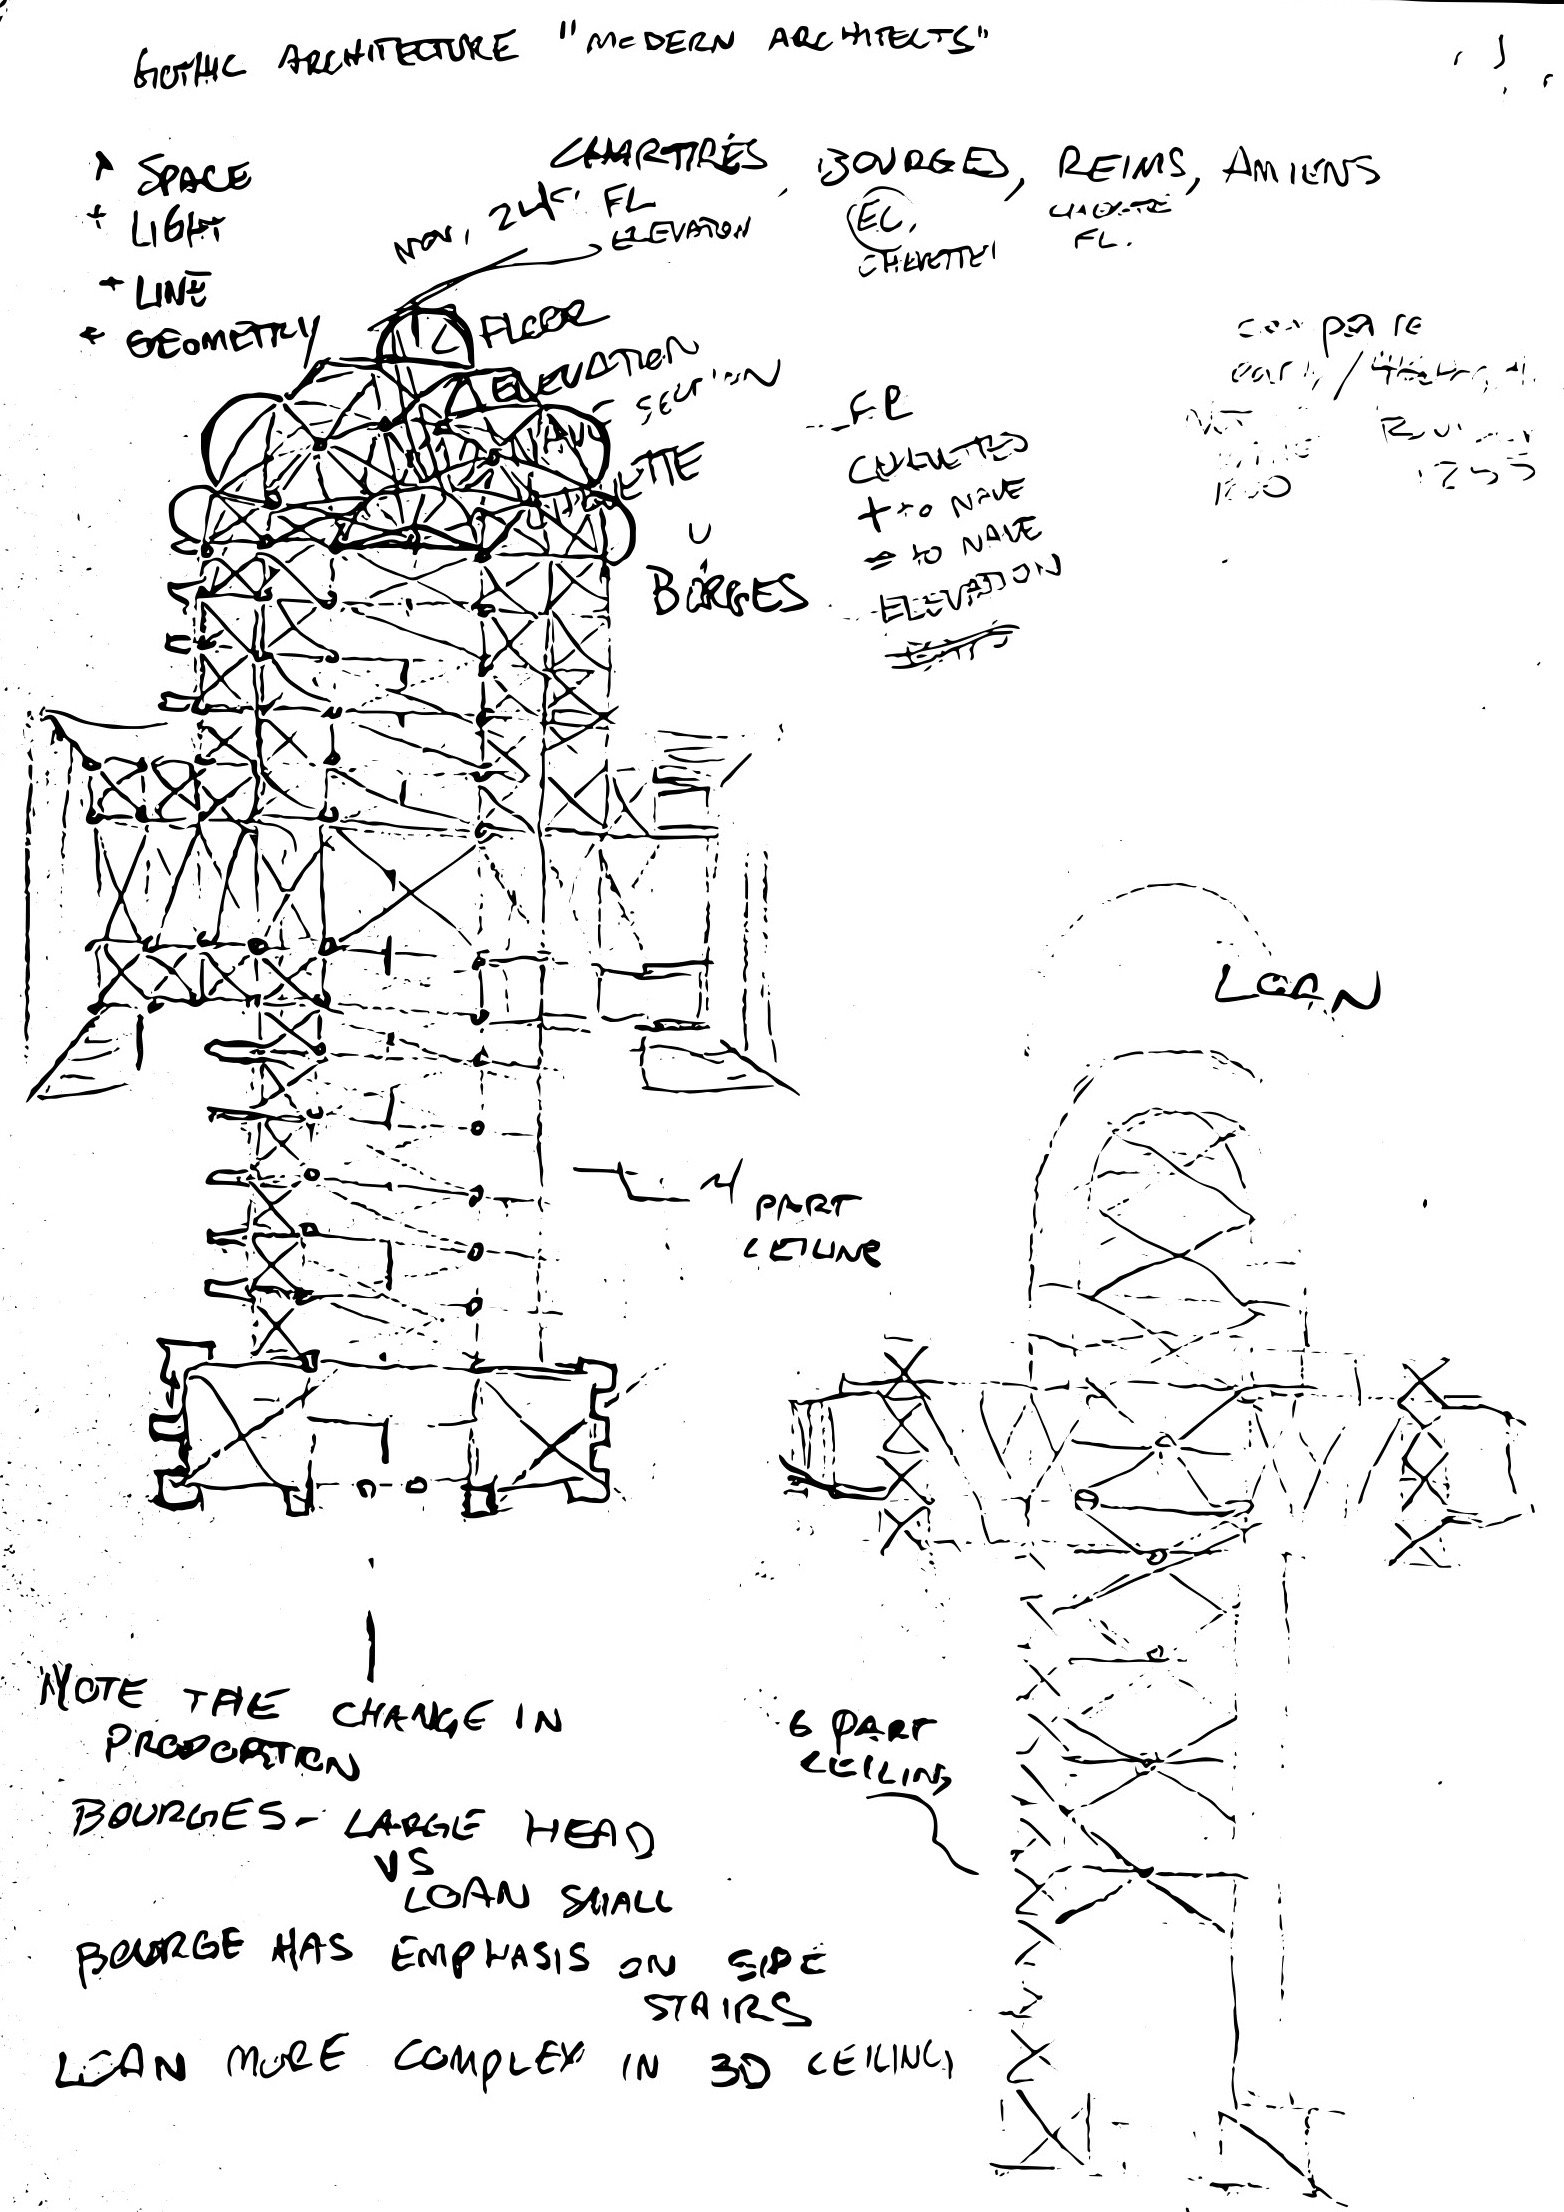 GOTHIC ARCHITECTURE "MODERN ARCHITECTS"
+ SPACE
+ LIGHT
+ LINE
+ GEOMETRY
CHARTRES, BOURGES, REIMS, AMIENS
NOV, 24
FL
ELEVATION
EL.
CHEVETTE
FL.
FLOOR
ELEVATION
NAVE SECTION
CHEVETTE
BORGES
CHEVETTES
+ to NAVE
= to NAVE
ELEVATION
compare
early /
4 PART
CEILING
LOAN
6 PART
CEILING
NOTE THE CHANGE IN
PROPORTION
BOURGES - LARGE HEAD
VS
LOAN SMALL
BOURGE HAS EMPHASIS ON SIDE
STAIRS
LOAN MORE COMPLEX IN 3D CEILING